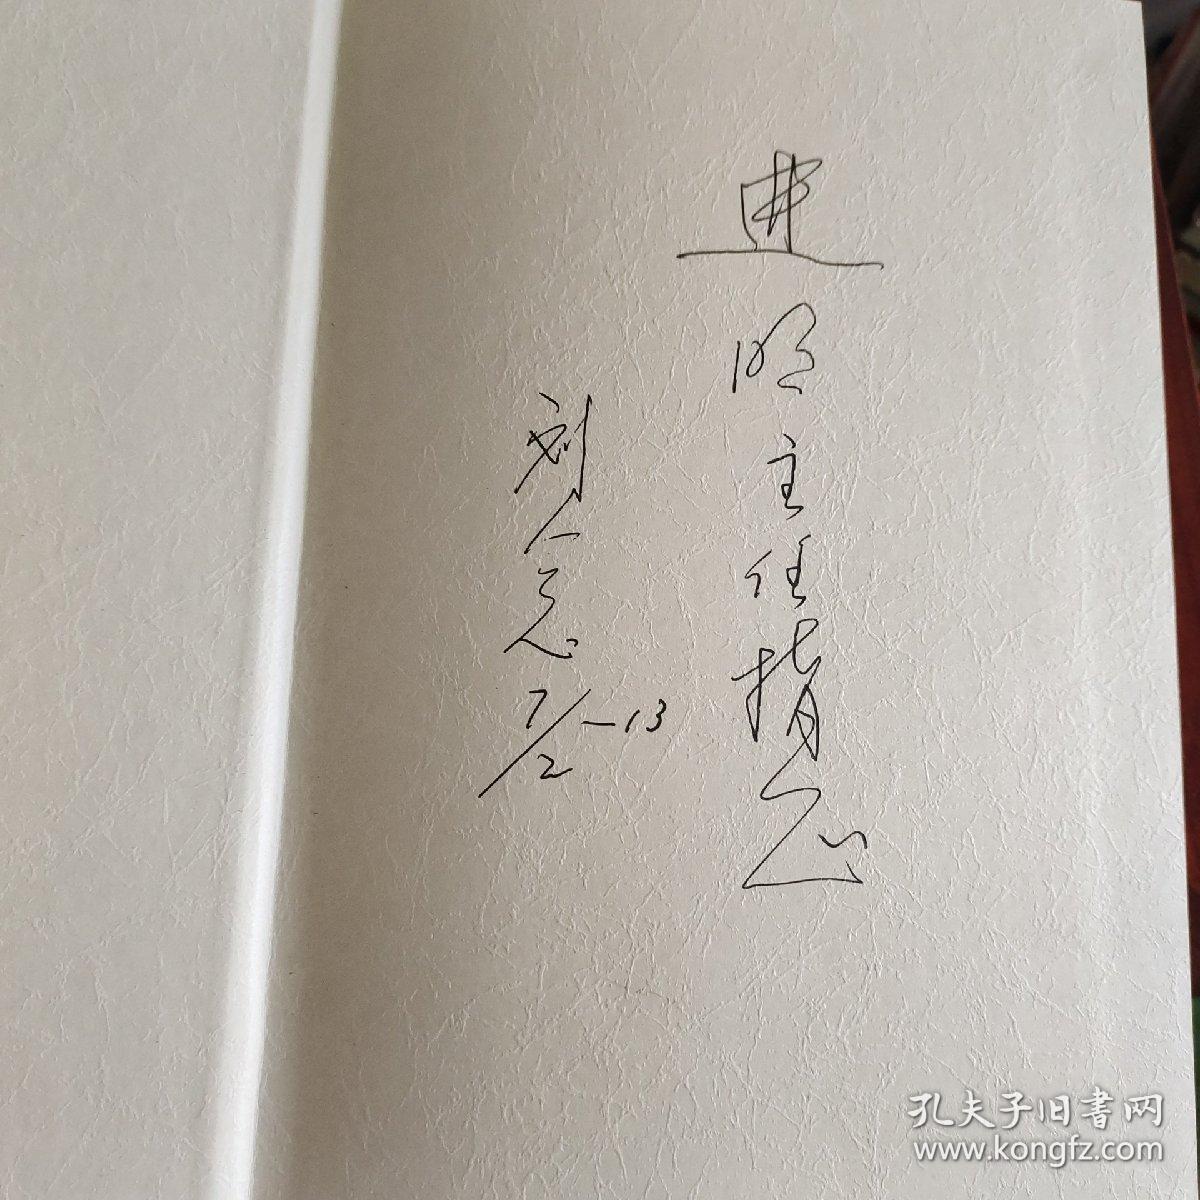 进明主任指正
刘人
7/2-13
孔夫子旧书网
www.kongfz.com